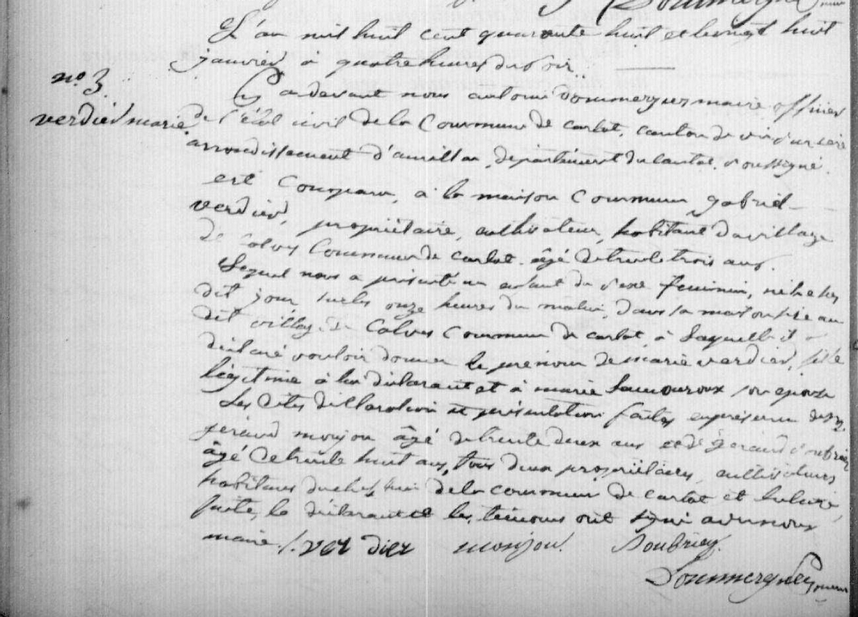 L'an mil huit cent quarante huit et le vingt huit
janvier à quatre heures du soir.
n° 3.
verdier marie
Par devant nous antoine Dommergues maire officier
de l'état civil de la Commune de carlat, canton de vic sur cère
arrondissement d'aurillac, département du cantal, soussigné.
est Comparu, à la maison Commune gabriel
verdier, propriétaire, cultivateur, habitant du village
de Calves Commune de carlat. âgé de trente trois ans.
Lequel nous a présenté un enfant du sexe feminin, né le
dit jour sur les onze heures du matin, dans sa maison sise au
dit village de Calves Commune de carlat, à laquelle il a
déclaré vouloir donner le prénom de marie verdier, fille
légitime à lui déclarant et à marie Lamouroux son épouse
Les dites déclaration et présentation faites en présence de
géraud monjou âgé de trente deux ans et de géraud Soubrier
âgé de trente huit ans, tous deux propriétaires, cultivateurs
habitans du chef lieu de la commune de carlat et lecture
faite, le déclarant et les témoins ont signé avec nous
maire /. verdier monjou. Soubrier.
Dommergues maire